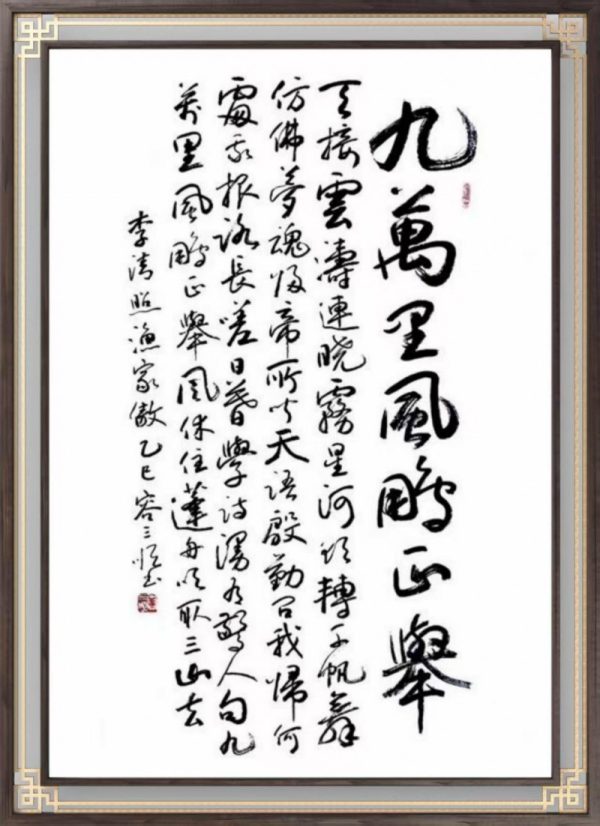 九萬里風鵬正舉
天接雲濤連曉霧星河欲轉千帆舞
仿佛夢魂歸帝所聞天語殷勤問我歸何
處我報路長嗟日暮學詩漫有驚人句九
萬里風鵬正舉風休住蓬舟吹取三山去
李清照漁家傲乙巳容三書